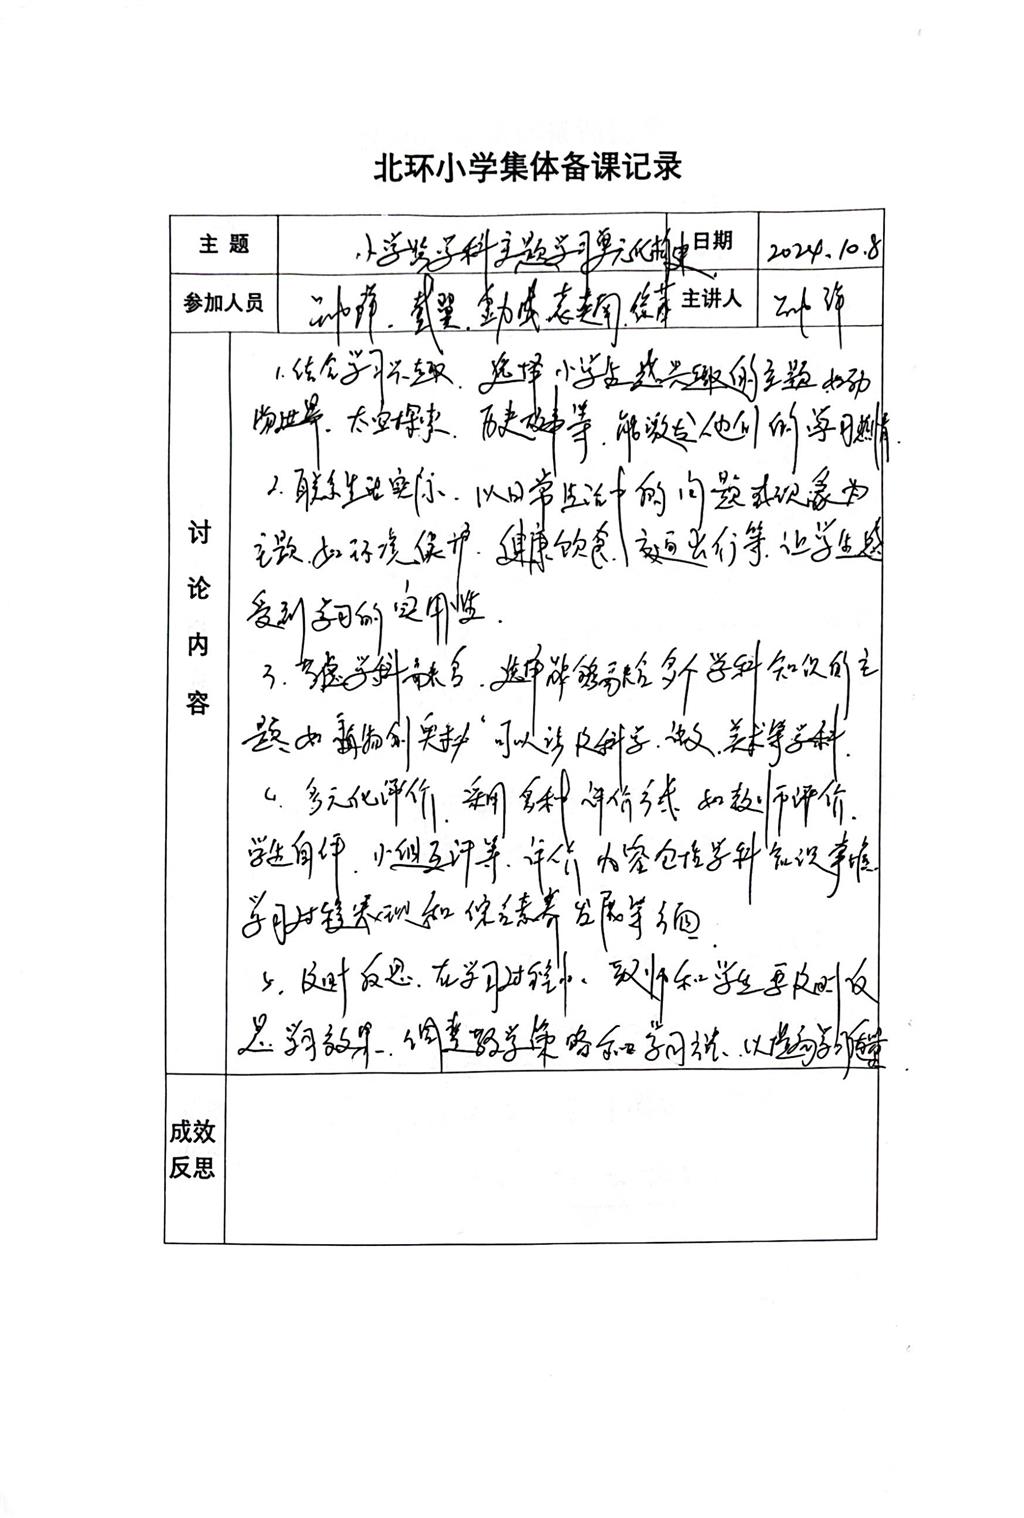 北环小学集体备课记录
主题 小学跨学科主题学习单元化构建 日期 2024.10.8
参加人员 主讲人
讨论内容
1.结合学习兴趣、选择小学生感兴趣的主题,如动
物世界、太空探索、历史故事等,能激发他们的学习热情.
2.联系生活实际、以日常生活中的问题或现象为
主题,如环境保护、健康饮食、交通出行等,让学生感
受到学习的实用性.
3.考虑学科融合,选择能够融合多个学科知识的主
题,如"植物的奥秘"可以涉及科学、语文、美术等学科.
4.多元化评价,采用多种评价方式,如教师评价、
学生自评、小组互评等,评价内容包括学科知识掌握、
学习过程表现和综合素养发展等方面.
5、及时反思,在学习过程中、教师和学生要及时反
思学习效果,调整教学策略和学习方法,以提高学习质量.
成效
反思